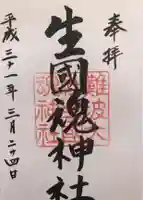 奉拝
生國魂神社
平成三十一年三月二十四日
難波大社